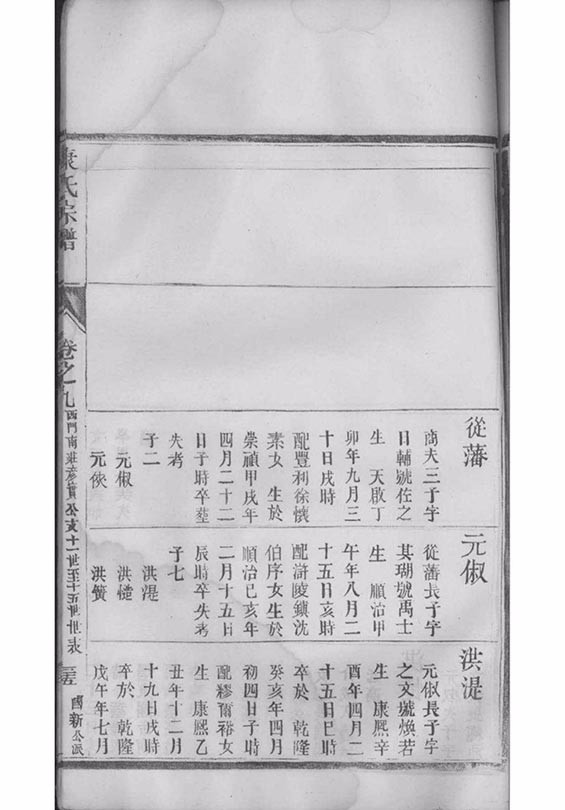 從藩
商夫三子字
日輔號佐之
生 天啟丁
卯年九月三
十日戌時
配豐利徐懷
素女 生於
崇禎甲戌年
四月二十二
日子時卒塟
失考
子二
元俶
元俠
元俶
從藩長子字
其瑚號禹士
生 順治甲
午年八月二
十五日亥時
配滸陵鎮沈
伯序女生於
順治己亥年
二月十五日
辰時卒失考
子七
洪湜
洪
洪簧
洪湜
元俶長子字
之文號煥若
生 康熙辛
酉年四月二
十五日巳時
卒於 乾隆
癸亥年四月
初四日子時
配繆爾裕女
生 康熙乙
丑年十二月
十九日戌時
卒於 乾隆
戊午年七月
康氏宗譜
卷之九
西門南莊彥貫公支十一世至十五世世表
三十五
國新公派